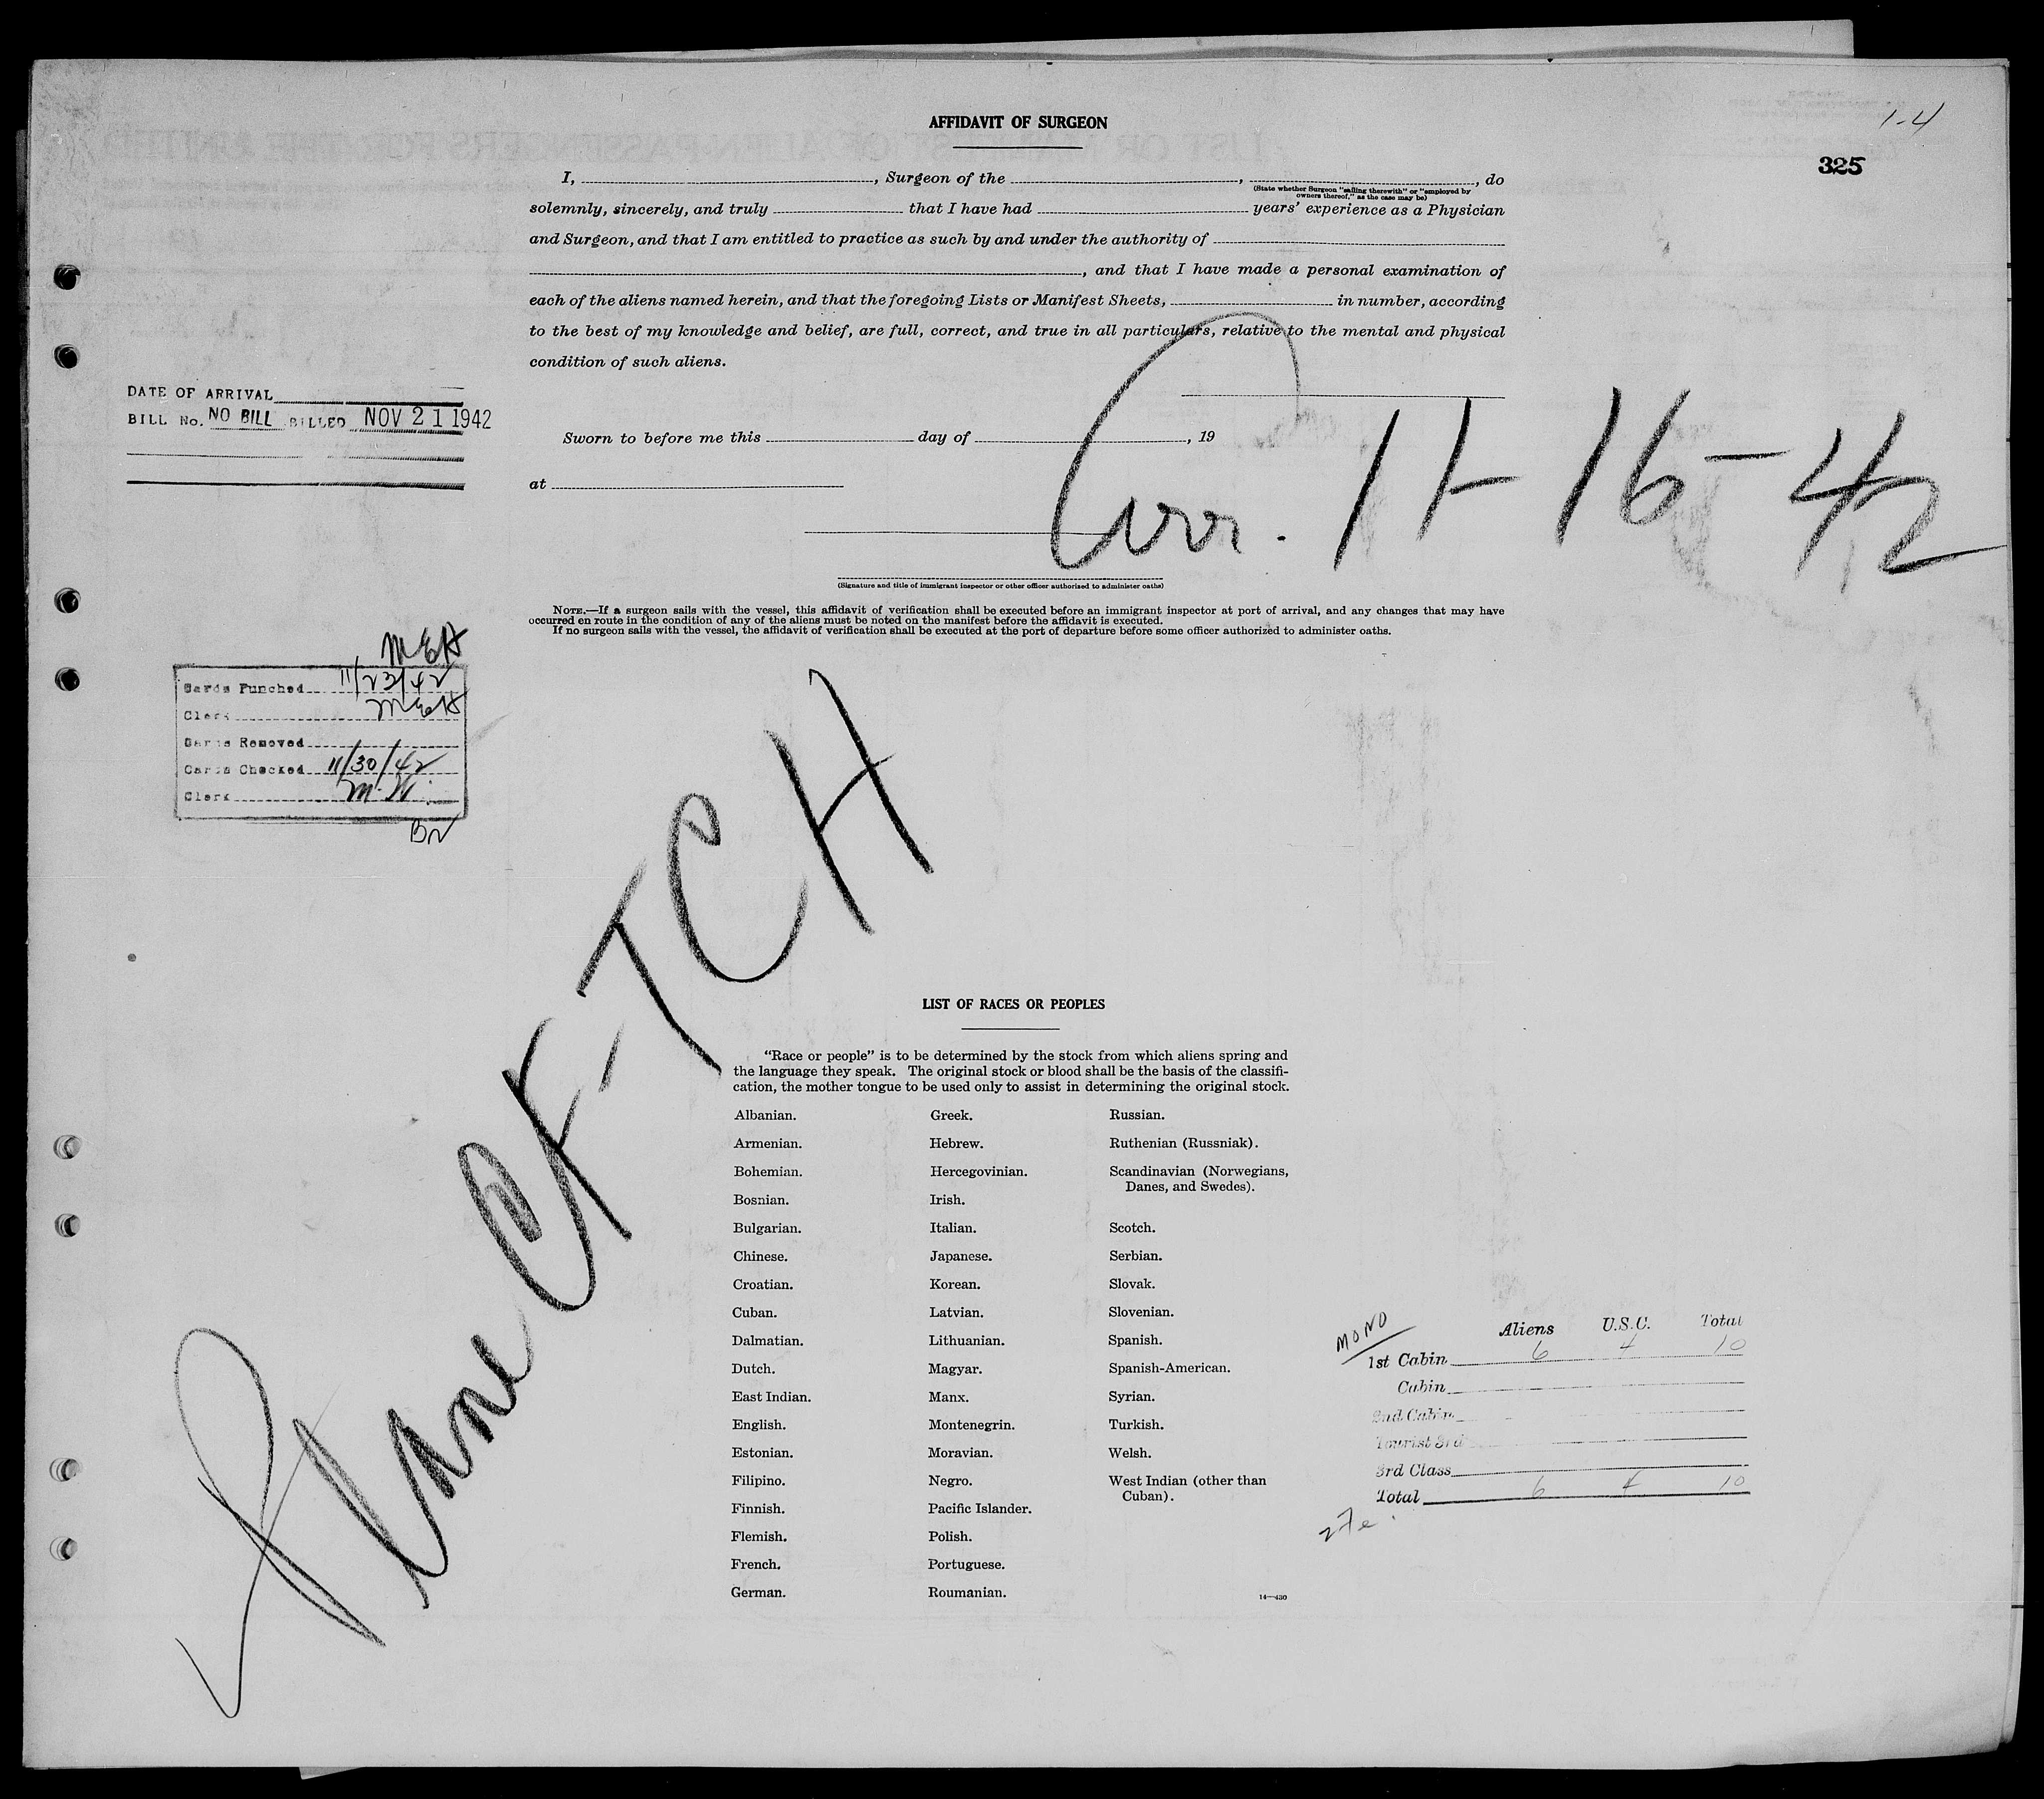 AFFIDAVIT OF SURGEON
1-4
325
I, , Surgeon of the , , do
(State whether Surgeon "sailing therewith" or "employed by
owners thereof," as the case may be)
solemnly, sincerely, and truly that I have had years' experience as a Physician
and Surgeon, and that I am entitled to practice as such by and under the authority of
, and that I have made a personal examination of
each of the aliens named herein, and that the foregoing Lists or Manifest Sheets, in number, according
to the best of my knowledge and belief, are full, correct, and true in all particulars, relative to the mental and physical
condition of such aliens.
DATE OF ARRIVAL
BILL No. NO BILL BILLED NOV 21 1942
Sworn to before me this day of , 19
at
Arr. 11-16-42
(Signature and title of immigrant inspector or other officer authorized to administer oaths)
NOTE.—If a surgeon sails with the vessel, this affidavit of verification shall be executed before an immigrant inspector at port of arrival, and any changes that may have
occurred en route in the condition of any of the aliens must be noted on the manifest before the affidavit is executed.
If no surgeon sails with the vessel, the affidavit of verification shall be executed at the port of departure before some officer authorized to administer oaths.
MEH
Cards Punched 11/23/42
Clerk MEH
Cards Removed
Cards Checked 11/30/42
Clerk M.W.
Plane CF-TCH
LIST OF RACES OR PEOPLES
"Race or people" is to be determined by the stock from which aliens spring and
the language they speak. The original stock or blood shall be the basis of the classifi-
cation, the mother tongue to be used only to assist in determining the original stock.
Albanian.
Armenian.
Bohemian.
Bosnian.
Bulgarian.
Chinese.
Croatian.
Cuban.
Dalmatian.
Dutch.
East Indian.
English.
Estonian.
Filipino.
Finnish.
Flemish.
French.
German.
Greek.
Hebrew.
Hercegovinian.
Irish.
Italian.
Japanese.
Korean.
Latvian.
Lithuanian.
Magyar.
Manx.
Montenegrin.
Moravian.
Negro.
Pacific Islander.
Polish.
Portuguese.
Roumanian.
Russian.
Ruthenian (Russniak).
Scandinavian (Norwegians,
Danes, and Swedes).
Scotch.
Serbian.
Slovak.
Slovenian.
Spanish.
Spanish-American.
Syrian.
Turkish.
Welsh.
West Indian (other than
Cuban).
14—430
MONO
Aliens U.S.C. Total
1st Cabin 6 4 10
Cabin
2nd Cabin
Tourist 3rd
3rd Class
Total 6 4 10